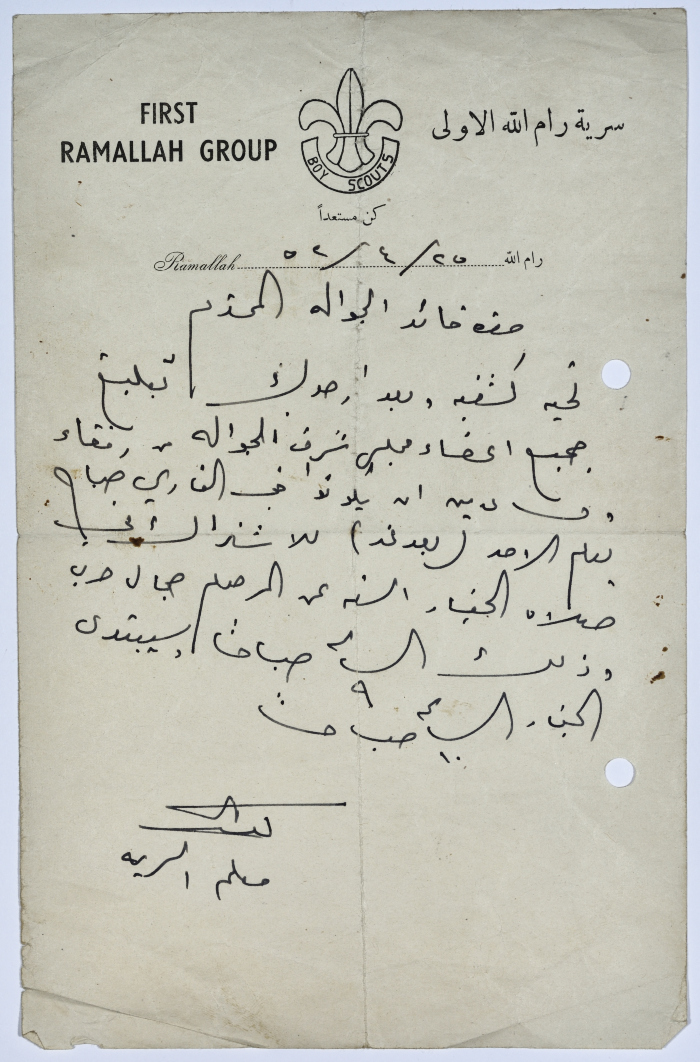 FIRST
RAMALLAH GROUP
BOY SCOUTS
سرية رام الله الاولى
كن مستعداً
Ramallah ٢٥/٤/٥٢ رام الله
حضرة قائد الجواله المحترم
تحيه كشفيه وبعد ارجوك تبليغ
جميع اعضاء مجلس شرف الجواله من رفقاء
ان يكونوا في النادي صباح
يوم الاحد (بعد غد) للاشتراك في
صلاة الجناز السنه عن المرحوم جمال حرب
وذلك الساعة ٩ صباحا وسيبتدى
الجناز الساعة ١٠ صباحا
معلم السريه